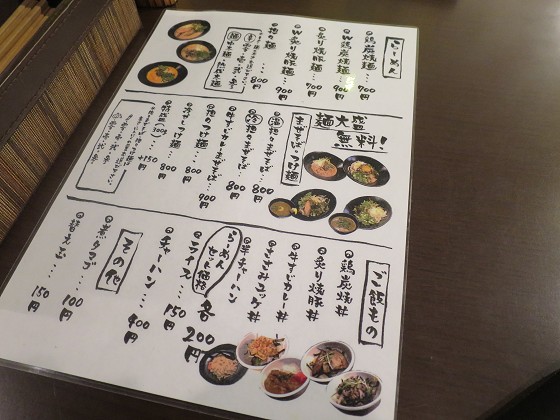 らーめん
鶏炭焼麺…700円
W鶏炭焼麺…900円
炙り焼豚麺…700円
W炙り焼豚麺…900円
担の麺…800円
麺大盛無料!
まぜそば・つけ麺
担のまぜそば…800円
冷担のまぜそば…800円
牛すじカレーまぜそば…900円
担のつけ麺…800円
冷がしつけ麺…800円
+150円
ご飯もの
鶏炭焼丼
炙り焼豚丼
牛すじカレー丼
ささみユッケ丼
半チャーハン
らーめんセット価格 各200円
ライス…150円
チャーハン…400円
その他
煮タマゴ…100円
替え玉…150円